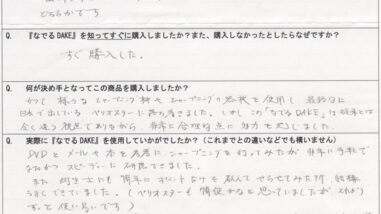 どちらかです
Q. 『なでるDAKE』を知ってすぐに購入しましたか？また、購入しなかったとしたらなぜですか？
すぐ購入した。
Q. 何が決め手となってこの商品を購入しましたか？
かつて様々なシャープニング材やシャープニングの器械を使用し、最終的に
日本で出ているペリオスターに落ち着きました。しかしこの「なでるDAKE」は従来とは
全く違う視点でありながら、非常に合理的な点に魅力を感じました。
Q. 実際に『なでるDAKE』を使用していかがでしたか？（これまでとの違いなどでも構いません）
DVDとメールや本を参考にシャープニングを行ってみたが非常に手軽で
なおかつスピーディーに研磨できました。
また、衛生士にも簡単にポイントだけを教えてやらせてみた所、結構
うまくできていました。（ペリオスターも簡便かなと思っていましたが、それより
ずっと使い易いです）